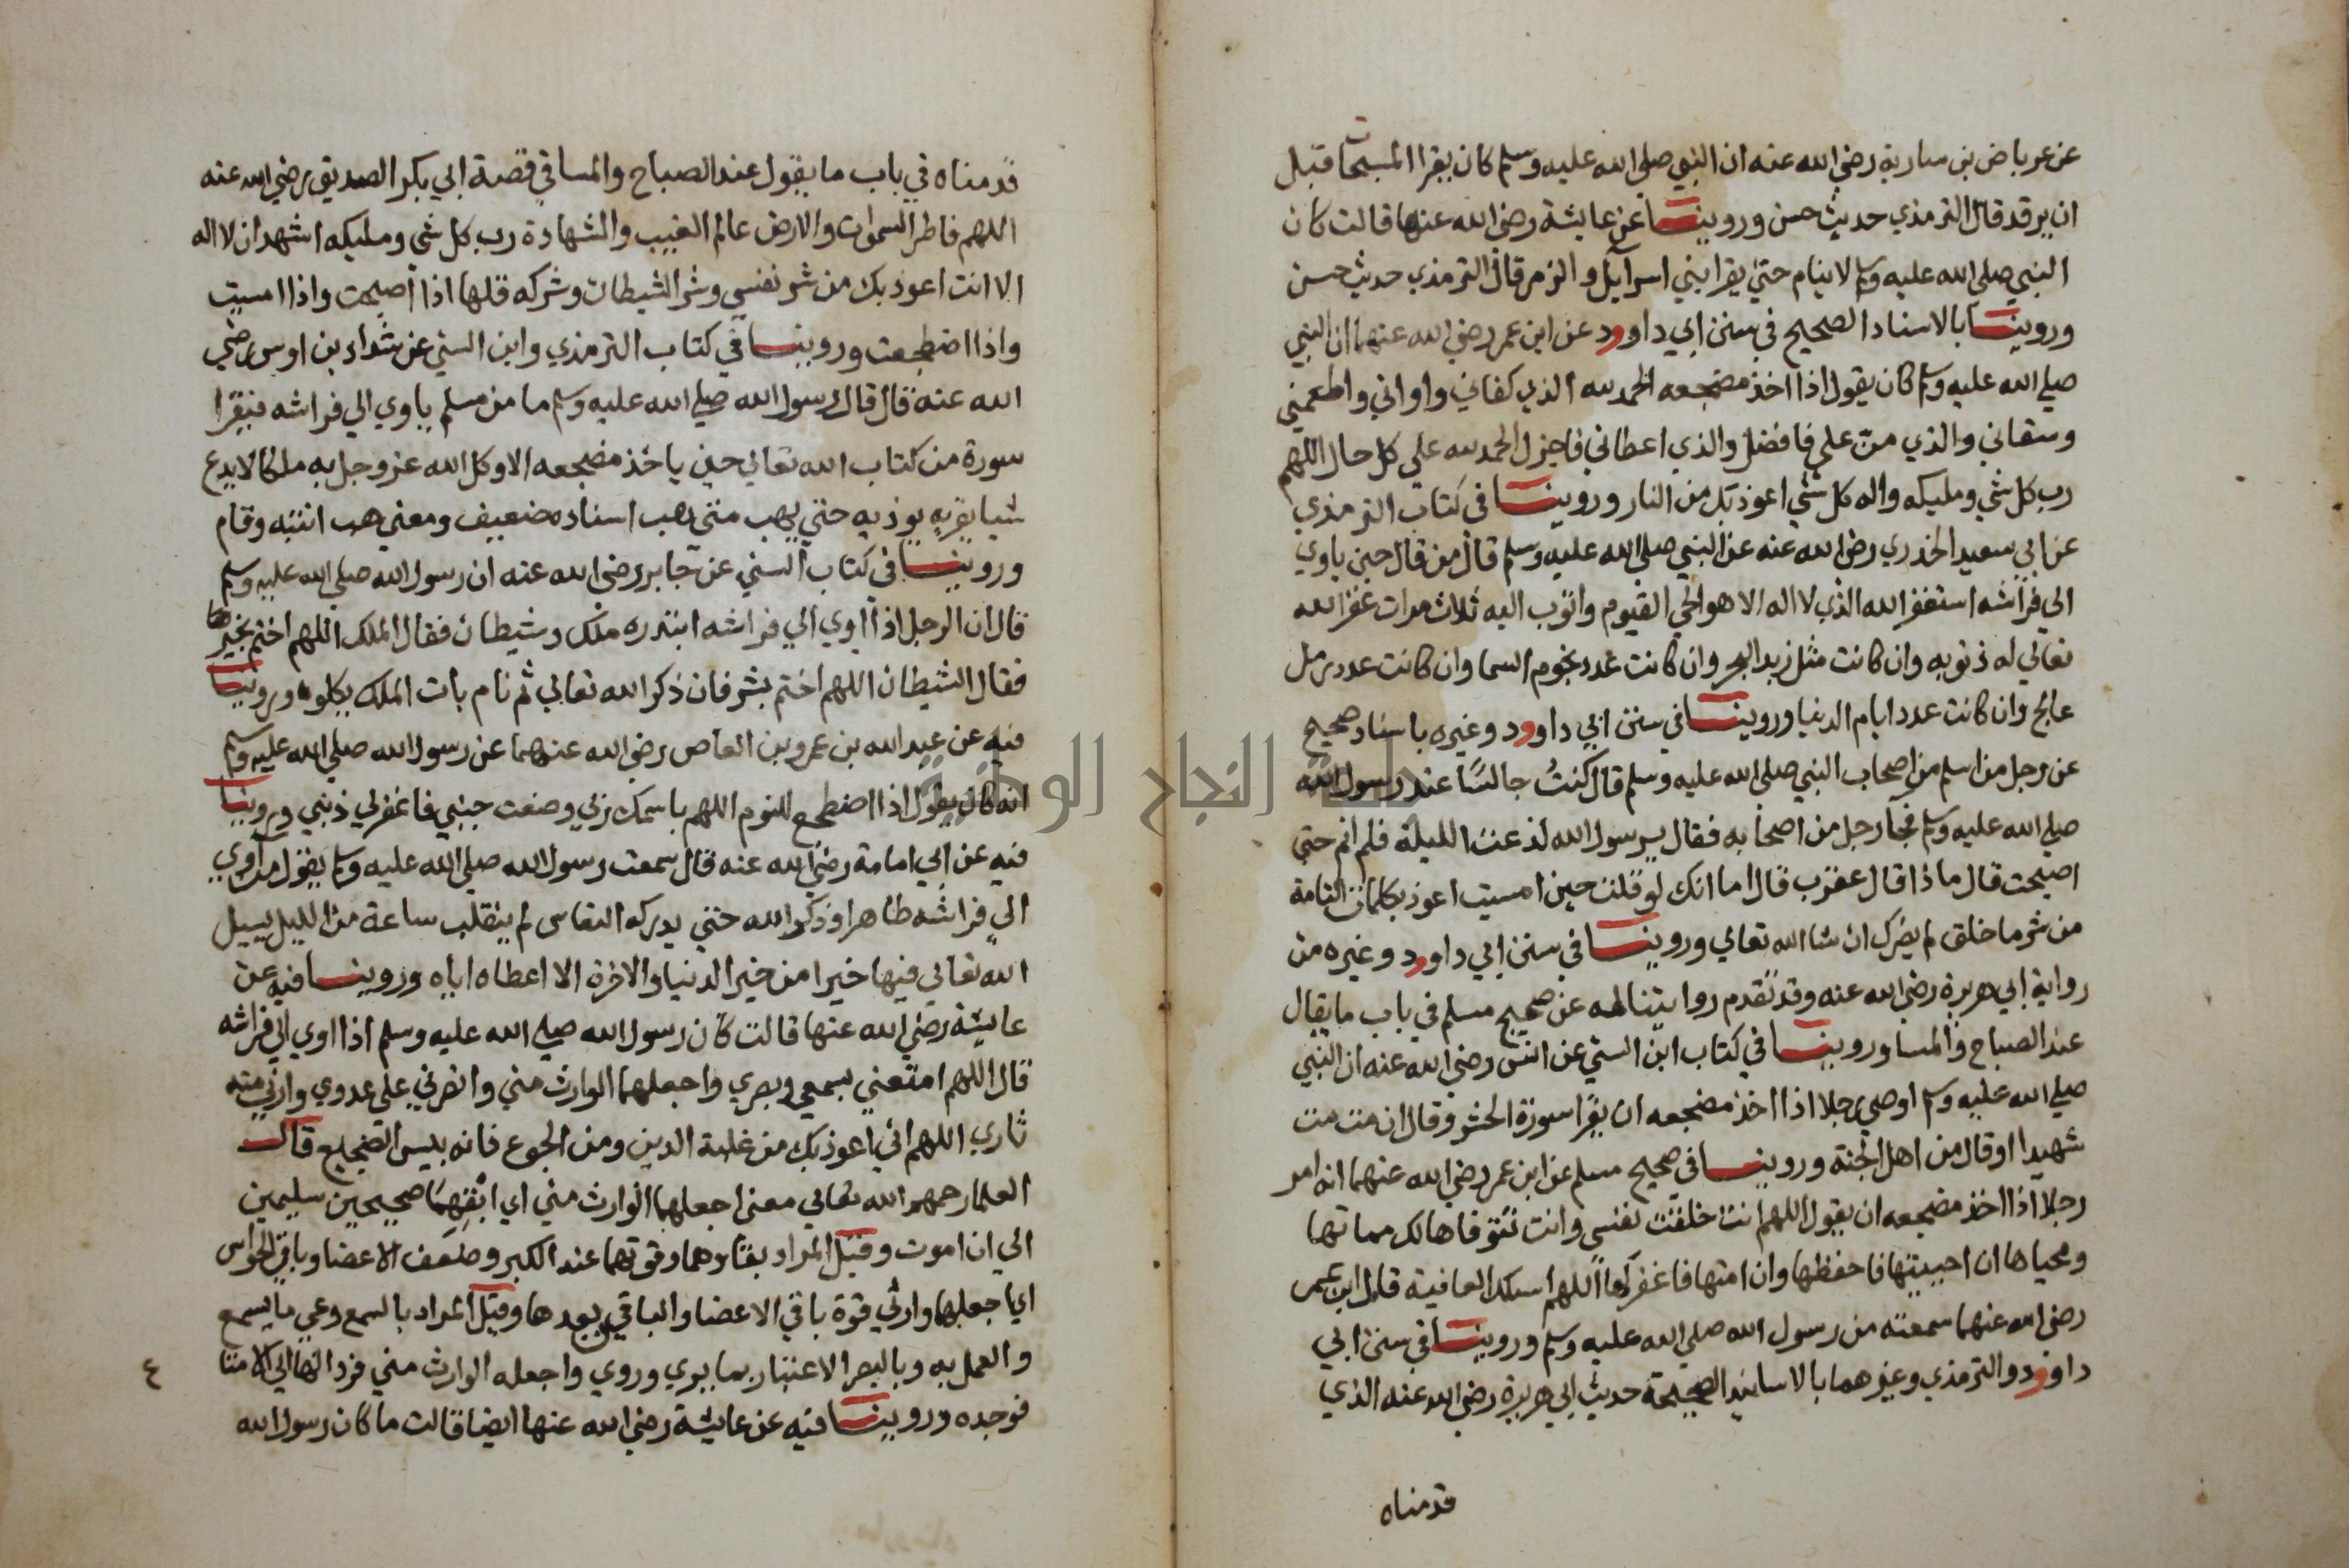 عن عرباض بن سارية رضي الله عنه ان النبي صلى الله عليه وسلم كان يقرا المسبحات قبل
ان يرقد قال الترمذي حديث حسن وروينا عن عايشة رضي الله عنها قالت كان
النبي صلى الله عليه وسلم لا ينام حتى يقرا بني اسرآيل والزمر قال الترمذي حديث حسن
وروينا بالاسناد الصحيح في سنن ابي داوود عن ابن عمر رضي الله عنهما ان النبي
صلى الله عليه وسلم كان يقول اذا اخذ مضجعه الحمد لله الذي كفاني واواني واطعمني
وسقاني والذي منّ علي فافضل والذي اعطاني فاجزل الحمد لله على كل حال اللهم
رب كل شي ومليكه واله كل شي اعوذ بك من النار وروينا في كتاب الترمذي
عن ابي سعيد الخدري رضي الله عنه عن النبي صلى الله عليه وسلم قال من قال حين ياوي
الى فراشه استغفر الله الذي لا اله الا هو الحي القيوم واتوب اليه ثلاث مرات غفر الله
تعالى له ذنوبه وان كانت مثل زبد البحر وان كانت عدد نجوم السما وان كانت عدد رمل
عالج وان كانت عدد ايام الدنيا وروينا في سنن ابي داوود وغيره باسناد صحيح
عن رجل من اسلم من اصحاب النبي صلى الله عليه وسلم قال كنتُ جالسًا عند رسول الله
صلى الله عليه وسلم فجآ رجل من اصحابه فقال يرسول الله لدغت الليلة فلم انم حتى
اصبحت قال ماذا قال عقرب قال اما انك لو قلت حين امسيت اعوذ بكلمات الله التامة
من شر ما خلق لم يضرك ان شا الله تعالى وروينا في سنن ابي داوود وغيره من
رواية ابي هريرة رضي الله عنه وقد تقدم روايتنا له عن صحيح مسلم في باب ما يقال
عند الصباح والمسا وروينا في كتاب ابن السني عن انس رضي الله عنه ان النبي
صلى الله عليه وسلم اوصى رجلا اذا اخذ مضجعه ان يقرا سورة الحشر وقال ان مت مت
شهيدا او قال من اهل الجنة وروينا في صحيح مسلم عن ابن عمر رضي الله عنهما انه امر
رجلا اذا اخذ مضجعه ان يقول اللهم انت خلقت نفسي وانت تتوفاها لك مماتها
ومحياها ان احييتها فاحفظها وان امتها فاغفر لها اللهم اسلك العافية قال ابن عمر
رضي الله عنهما سمعته من رسول الله صلى الله عليه وسلم وروينا في سنن ابي
داوود والترمذي وغيرهما بالاسانيد الصحيحة حديث ابي هريرة رضي الله عنه الذي
قدمناه
قدمناه في باب ما يقول عند الصباح والمسا في قصة ابي بكر الصديق رضي الله عنه
اللهم فاطر السموات والارض عالم الغيب والشهادة رب كل شي ومليكه اشهد ان لا اله
الا انت اعوذ بك من شر نفسي وشر الشيطان وشركه قلها اذا اصبحت واذا امسيت
واذا اضطجعت وروينا في كتاب الترمذي وابن السني عن شداد بن اوس رضي
الله عنه قال قال رسول الله صلى الله عليه وسلم ما من مسلم ياوي الى فراشه فيقرا
سورة من كتاب الله تعالى حين ياخذ مضجعه الا وكل الله عز وجل به ملكا لا يدع
شيا يقربه يوذيه حتى يهب متى هب اسناده ضعيف ومعنى هب انتبه وقام
وروينا في كتاب السني عن جابر رضي الله عنه ان رسول الله صلى الله عليه وسلم
قال ان الرجل اذا اوى الى فراشه ابتدره ملك وشيطان فقال الملك اللهم اختم بخير
فقال الشيطان اللهم اختم بشر فان ذكر الله تعالى ثم نام بات الملك يكلوه وروينا
فيه عن عبد الله بن عمرو بن العاص رضي الله عنهما عن رسول الله صلى الله عليه وسلم
انه كان يقول اذا اضطجع للنوم اللهم باسمك ربي وضعت جنبي فاغفر لي ذنبي وروينا
فيه عن ابي امامة رضي الله عنه قال سمعت رسول الله صلى الله عليه وسلم يقول من اوى
الى فراشه طاهرا وذكر الله حتى يدركه النعاس لم ينقلب ساعة من الليل يسيل
الله تعالى فيها خيرا من خير الدنيا والاخرة الا اعطاه اياه وروينا فيه عن
عايشة رضي الله عنها قالت كان رسول الله صلى الله عليه وسلم اذا اوى الى فراشه
قال اللهم امتعني بسمعي وبصري واجعلهما الوارث مني وانصرني على عدوي وارني منه
ثاري اللهم اني اعوذ بك من غلبة الدين ومن الجوع فانه بيس الضجيع قال
العلما رحمهم الله تعالى معنى اجعلهما الوارث مني اي ابقهما صحيحين سليمين
الى ان اموت وقيل المراد بقاوهما وقوتهما عند الكبر وضعف الاعضا وباقي الحواس
اي اجعلهما وارثي قوة باقي الاعضا والباقي بعدها وقيل المراد بالسمع وعي ما يسمع
والعمل به وبالبصر الاعتبار بما يرى وروي واجعله الوارث مني فرد الها الى الامتا
٤
فوحده وروينا فيه عن عايشة رضي الله عنها ايضا قالت ما كان رسول الله
النجاح